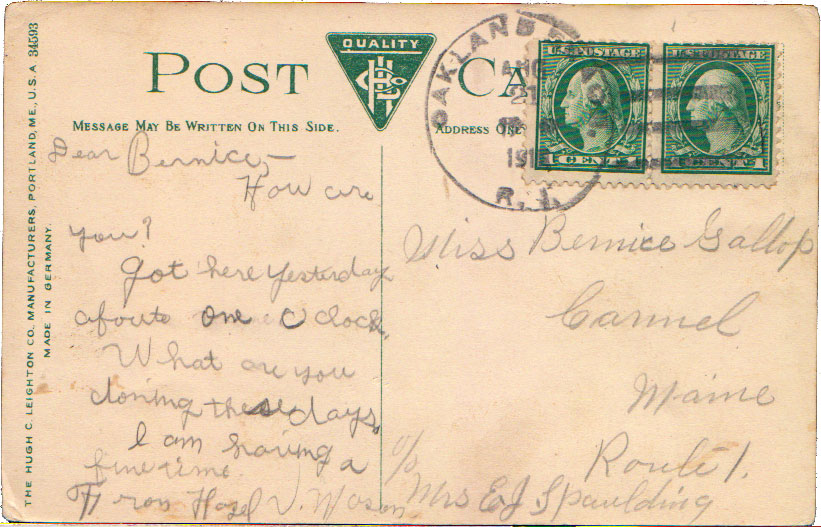 POST CA
QUALITY
HLCo
MESSAGE MAY BE WRITTEN ON THIS SIDE.
ADDRESS ONL
OAKLAND
AUG
21
191
R. I.
U.S. POSTAGE
1 CENTS
U.S. POSTAGE
CENTS 1
THE HUGH C. LEIGHTON CO. MANUFACTURERS, PORTLAND, ME., U.S.A. 34593
MADE IN GERMANY.
Dear Bernice,—
How are
you?
Got here yesterday
aboute one O clock.
What are you
doning these days.
I am having a
fine time.
From Hazel V.
Miss Bernice Gallop
Carmel
Maine
Route 1.
c/o
Mrs E J Spaulding